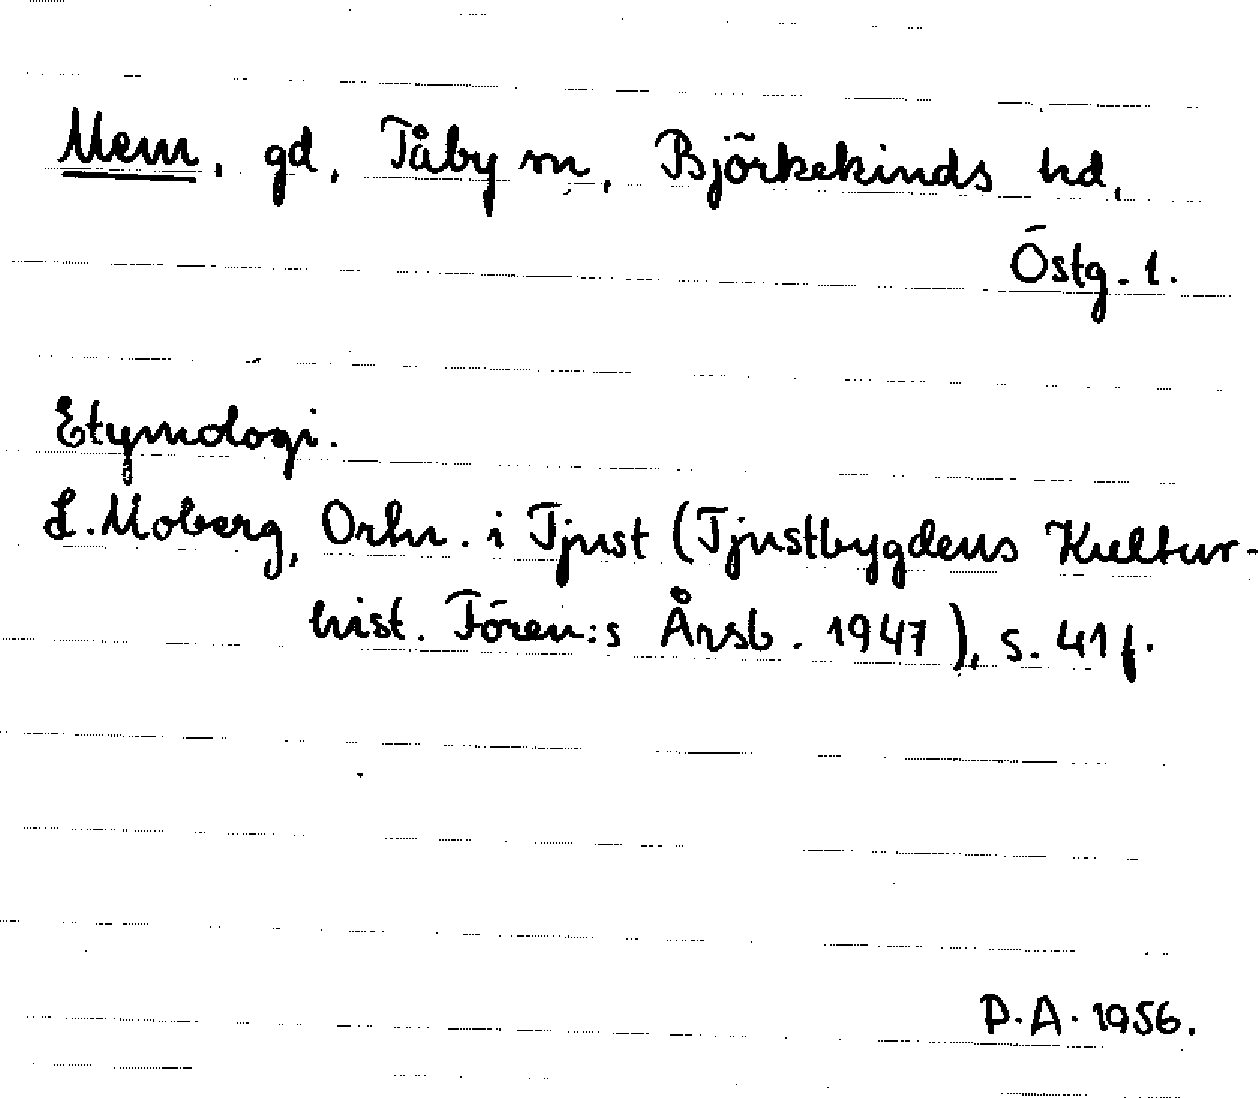 Mem, gd, Tåby sn, Björkekinds hd,
Östg. l.
Etymologi.
L. Moberg, Ortn. i Tjust (Tjustbygdens Kultur-
hist. Fören:s Årsb. 1947), s. 41 f.
P.A. 1956.